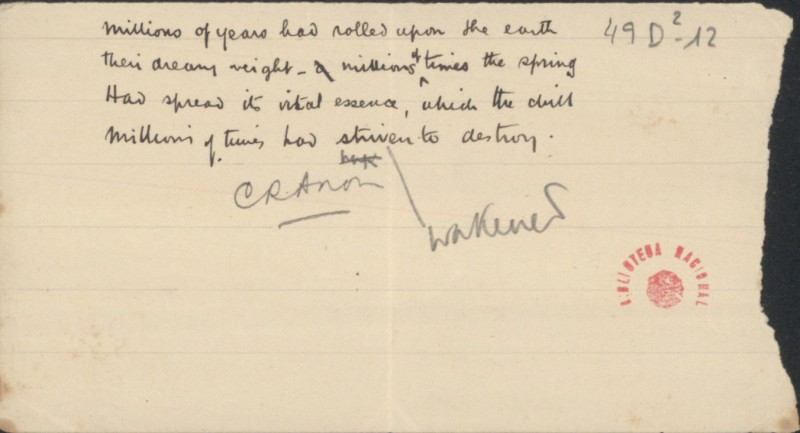 49 D²-12
Millions of years had rolled upon the earth
their dreamy weight - a millions of times the spring
Had spread its vital essence, which the chill
Millions of times had striven to destroy.
C R Anon
wakened
BIBLIOTECA NACIONAL